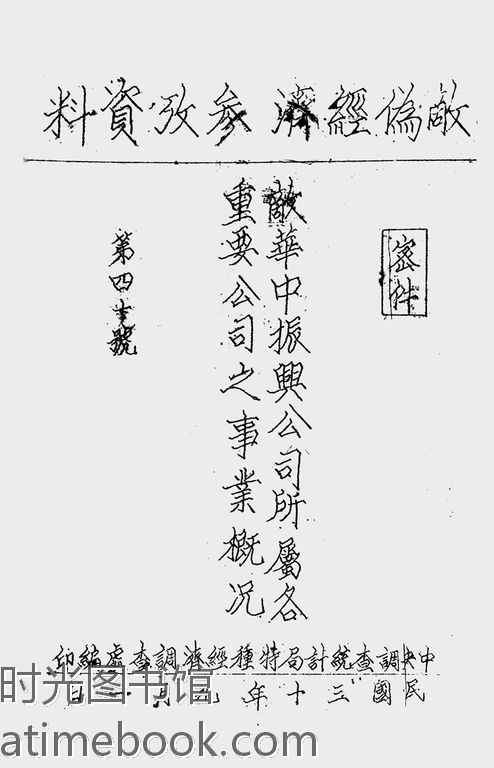 敵偽經濟參攷資料
密件
敵華中振興公司所屬各
重要公司之事業概況
第四十號
中央調查統計局特種經濟調查處編印
民國三十年九月一日
时光图书馆
atimebook.com